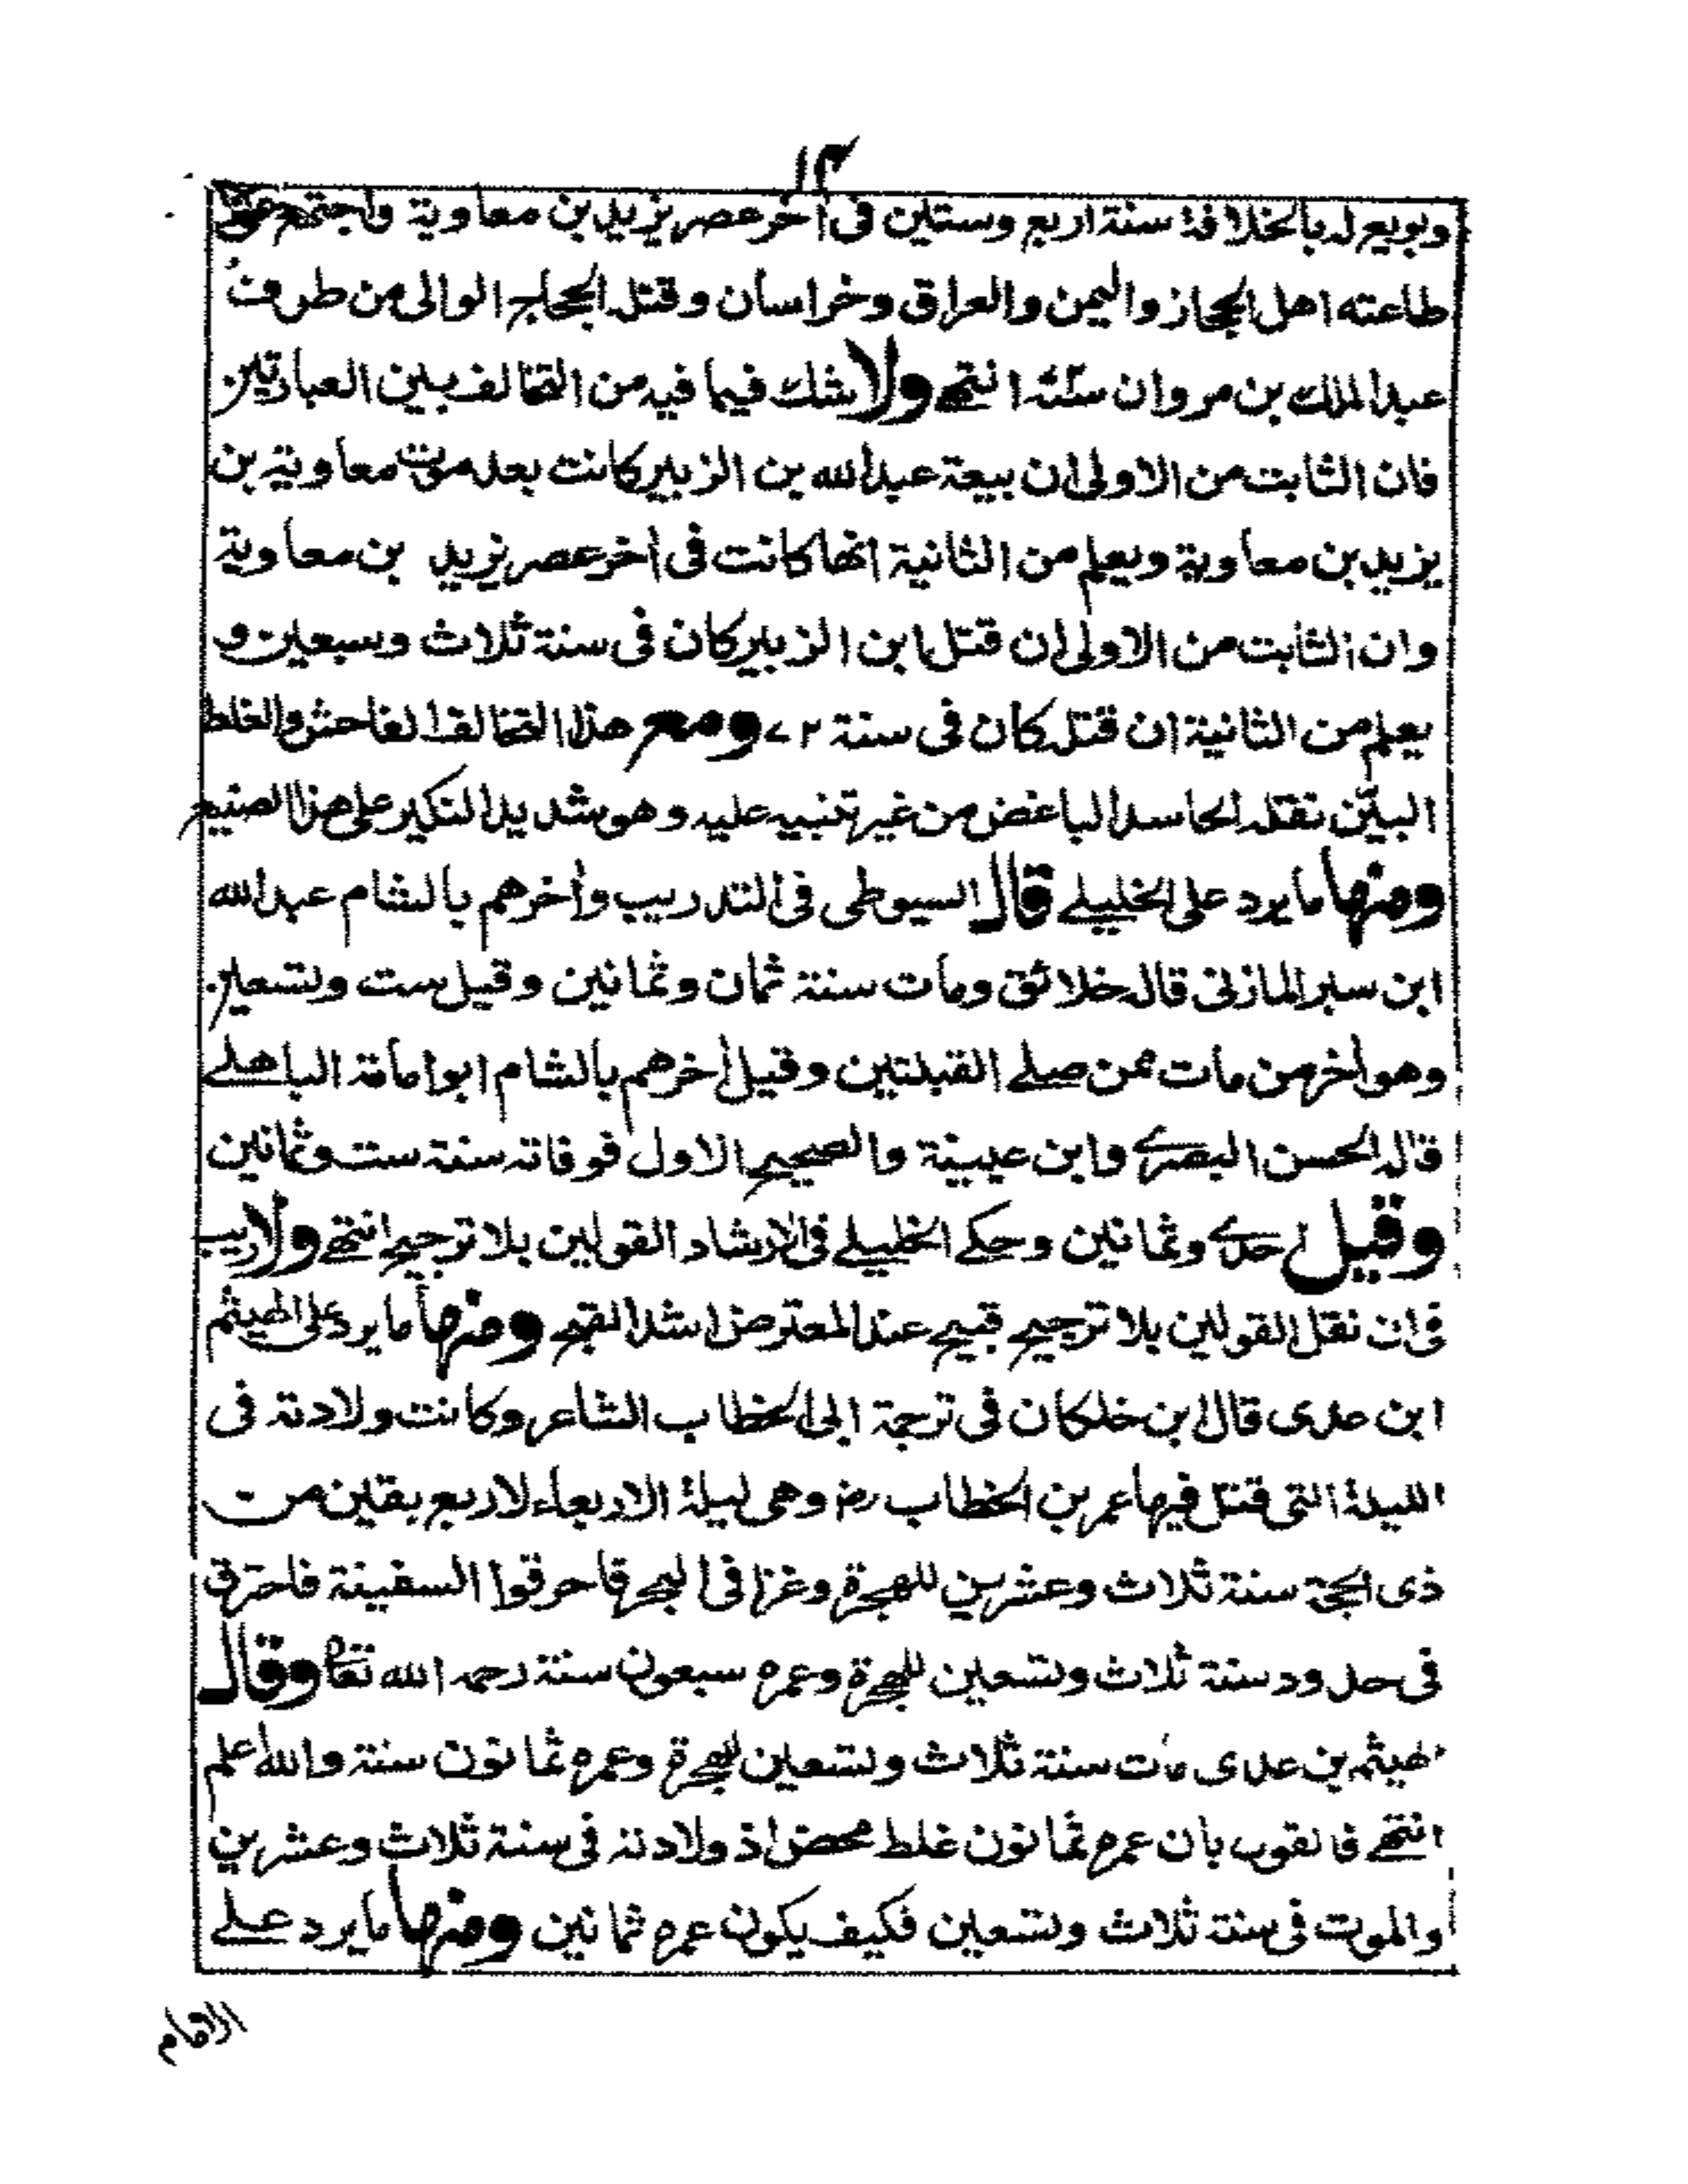 ١٢
وبويع له بالخلافة سنة اربع وستين فى أخر عصر يزيد بن معاوية واجتمع على
طاعته اهل الحجاز واليمن والعراق وخراسان وقتله الحجاج الوالى من طرف
عبد الملك بن مروان انتهے ولا شك فيما فيه من التخالف بين العبارتين
فان الثابت من الاولى ان بيعة عبد الله بن الزبير كانت بعد موت معاوية بن
يزيد بن معاوية ويعلم من الثانية انها كانت فى أخر عصر يزيد بن معاوية
وان الثابت من الاولى ان قتل ابن الزبير كان فى سنة ثلاث وسبعين و
يعلم من الثانية ان قتله كان فى سنة ٧٢ ومع هذا التخالف الفاحش والغلط
البيّن نقله الحاسد الباغض من غير تنبيه عليه وهو شديد النكير على هذا الصنيع
ومنها ما يرد على الخليلے قال السيوطى فى التدريب وأخرهم بالشام عبد الله
ابن سبر المازنى قاله خلائق ومات سنة ثمان وثمانين وقيل ست وتسعين
وهو أخر من مات ممن صلے القبلتين وقيل أخرهم بالشام ابو امامة الباهلے
قاله الحسن البصرے وابن عيينة والصحيح الاول فوفاته سنة ست وثمانين
وقيل احدے وثمانين وحكے الخليلے فى الارشاد القولين بلا ترجيح انتهے ولا ريب
فى ان نقل القولين بلا ترجيح قبيح عند المعترض اشد القبح ومنها ما يرد على الهيثم
ابن عدى قال ابن خلكان فى ترجمة ابى الخطاب الشاعر وكانت ولادته فى
الليلة التى قتل فيها عمر بن الخطاب رض وهى ليلة الاربعاء لاربع بقين من
ذى الحجة سنة ثلاث وعشرين للهجرة وغزا فى البحر فاحرقوا السفينة فاحترق
فى حدود سنة ثلاث وتسعين للهجرة وعمره سبعون سنة رحمه الله تعا وقال
هيثم بن عدى مات سنة ثلاث وتسعين للهجرة وعمره ثمانون سنة والله اعلم
انتهے فالقول بان عمره ثمانون غلط محض اذ ولادته فى سنة ثلاث وعشرين
والموت فى سنة ثلاث وتسعين فكيف يكون عمره ثمانين ومنها ما يرد علے
الامام